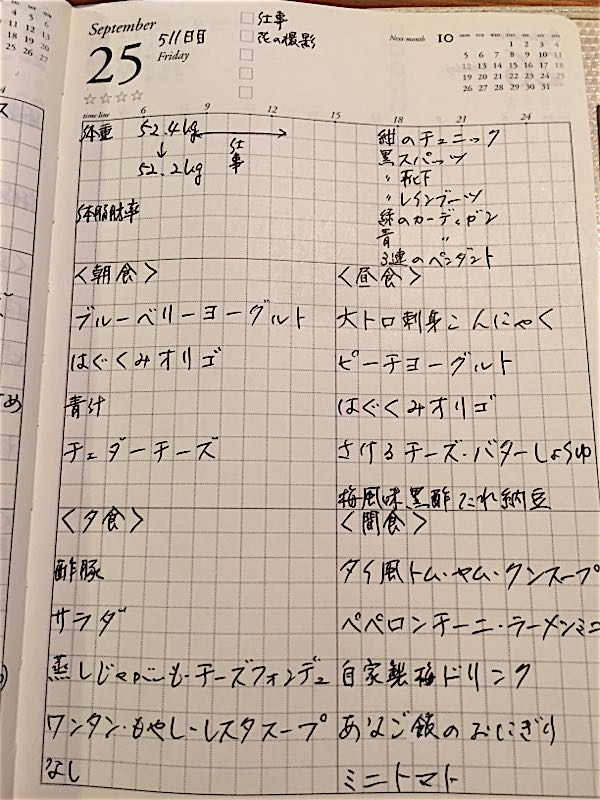 September
25
511日目
Friday
仕事
花の撮影
Next month 10
MON TUE WED THU FRI SAT SUN
1 2 3 4
5 6 7 8 9 10 11
12 13 14 15 16 17 18
19 20 21 22 23 24 25
26 27 28 29 30 31
time line 6 9 12 15 18 21 24
体重 52.4kg
↓
52.2kg
仕事
体脂肪率
紺のチュニック
黒スパッツ
〃 靴下
〃 レインブーツ
緑のカーディガン
青 〃
3連のペンダント
<朝食>
ブルーベリーヨーグルト
はぐくみオリゴ
青汁
チェダーチーズ
<昼食>
大トロ刺身こんにゃく
ピーチヨーグルト
はぐくみオリゴ
さけるチーズ・バターしょうゆ
梅風味黒酢たれ納豆
<夕食>
酢豚
サラダ
蒸しじゃがいも・チーズフォンデュ
ワンタン・もやし・レタススープ
なし
<間食>
タイ風トム・ヤム・クンスープ
ペペロンチーニ・ラーメンミニ
自家製梅ドリンク
あなご飯のおにぎり
ミニトマト